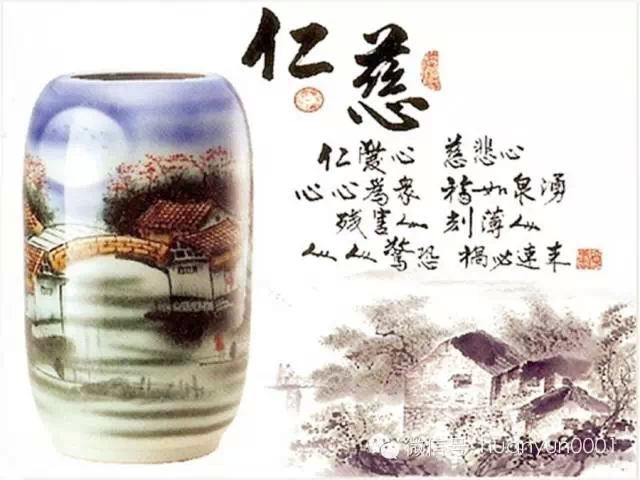 仁慈
仁愛心 慈悲心
心心為衆 福如泉湧
残害人 刻薄人
人人驚恐 禍必連来
微信号: huanyun0001